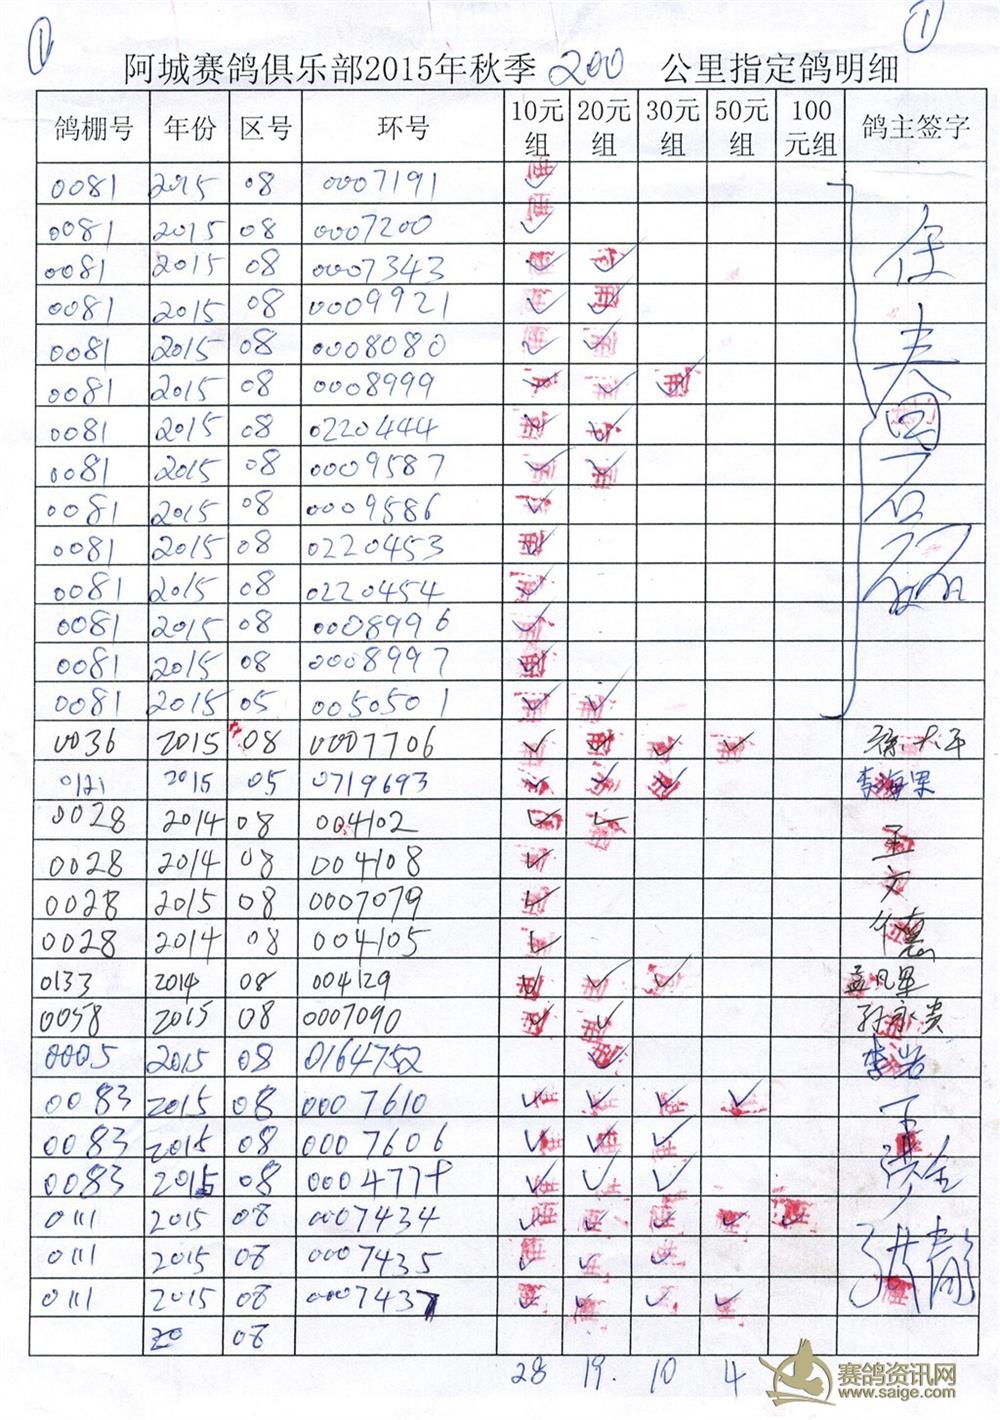 ① ①
阿城赛鸽俱乐部2015年秋季 200 公里指定鸽明细
鸽棚号 年份 区号 环号 10元组 20元组 30元组 50元组 100元组 鸽主签字
0081 2015 08 0007191 ✓
0081 2015 08 0007200 ✓
0081 2015 08 0007343 ✓ ✓
0081 2015 08 0009921 ✓ ✓
0081 2015 08 0008080 ✓ ✓
0081 2015 08 0008999 ✓ ✓ ✓
0081 2015 08 0220444 ✓ ✓
0081 2015 08 0009587 ✓ ✓
0081 2015 08 0009586 ✓
0081 2015 08 0220453 ✓
0081 2015 08 0220454 ✓
0081 2015 08 0008996 ✓
0081 2015 08 0008997 ✓
0081 2015 05 0050501 ✓ ✓
0036 2015 08 0007706 ✓ ✓ ✓ ✓
0121 2015 05 0719693 ✓ ✓ ✓ 李海果
0028 2014 08 004102 ✓ ✓
0028 2014 08 004108 ✓
0028 2015 08 0007079 ✓
0028 2014 08 004105 ✓
0133 2014 08 004129 ✓ ✓ ✓
0058 2015 08 0007090 ✓ ✓ 孙永贵
0005 2015 08 0164752 ✓ 李岩
0083 2015 08 0007610 ✓ ✓ ✓ ✓
0083 2015 08 0007606 ✓ ✓ ✓
0083 2015 08 000477 ✓ ✓ ✓
0111 2015 08 0007434 ✓ ✓ ✓ ✓ ✓
0111 2015 08 0007435 ✓ ✓ ✓
0111 2015 08 0007437 ✓ ✓ ✓ ✓
20 08
28 19. 10 4
赛鸽资讯网
www.saige.com